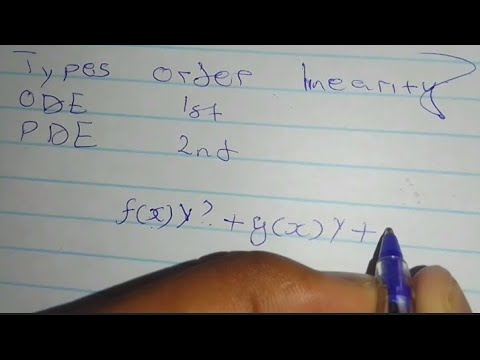 Types order linearity
ODE 1st
PDE 2nd
f(x)y? + g(x)y +